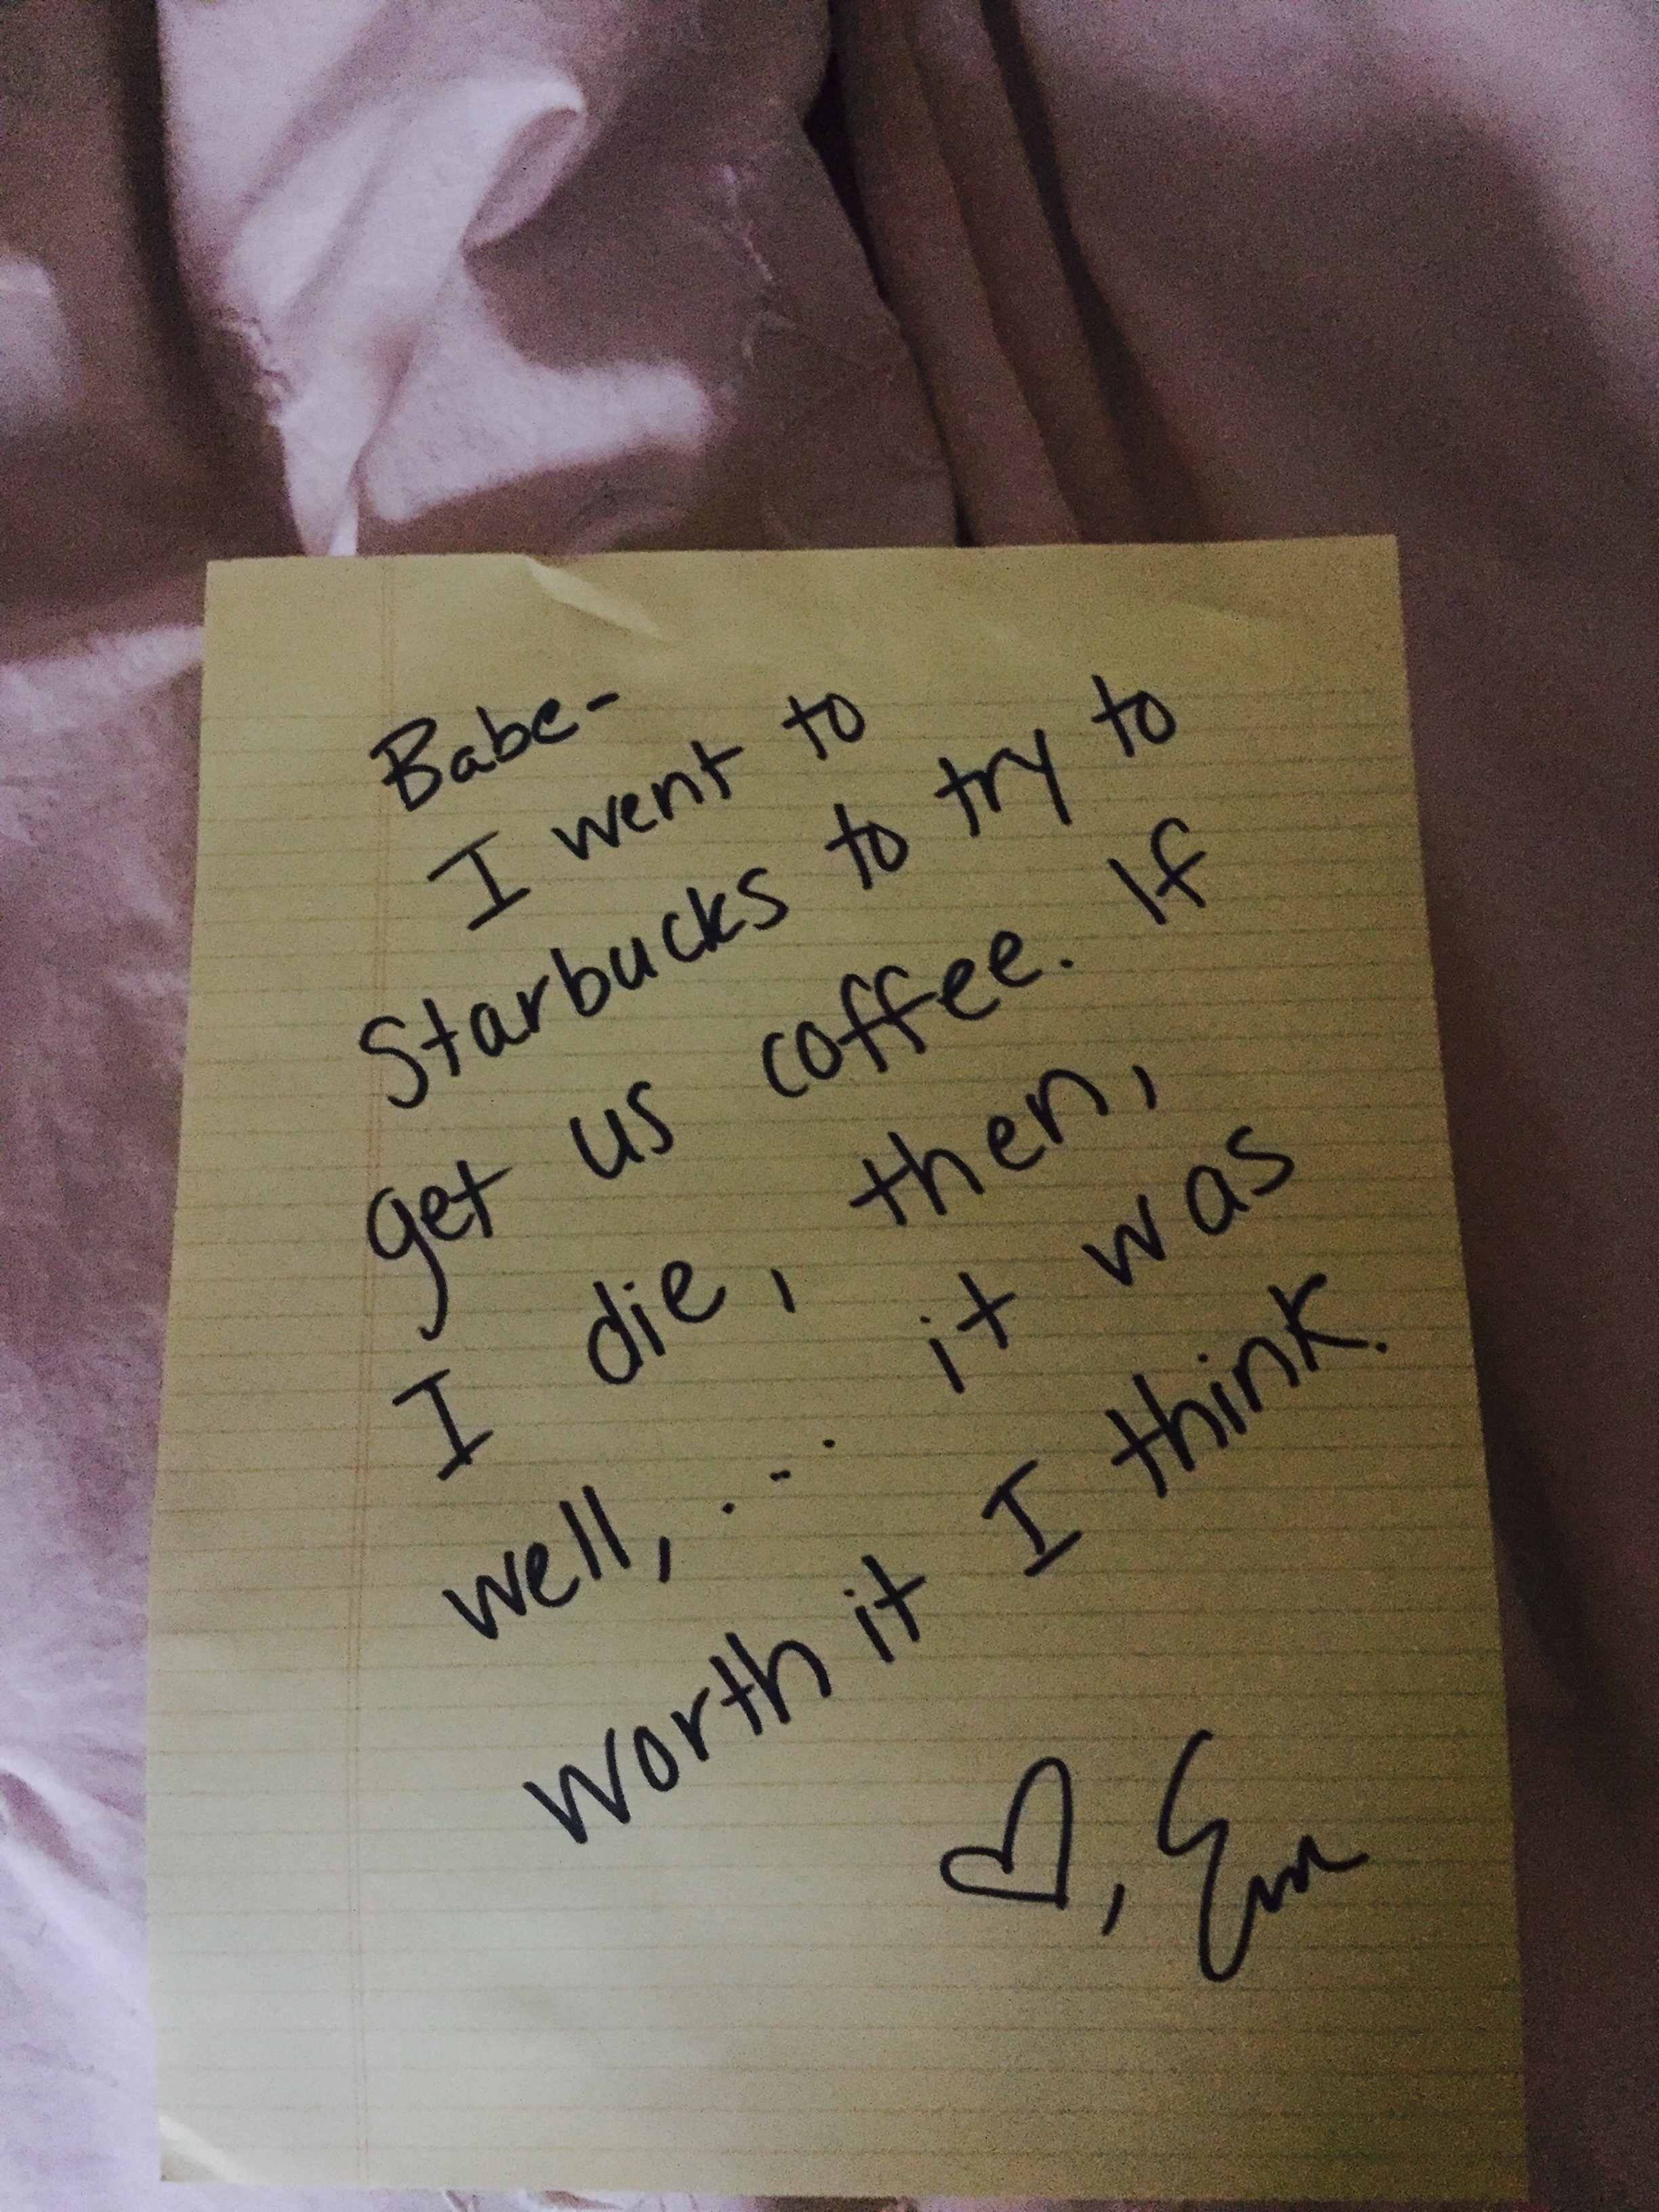 Babe-
I went to
Starbucks to try to
get us coffee. If
I die, then,
well, ... it was
worth it I think.
♡,